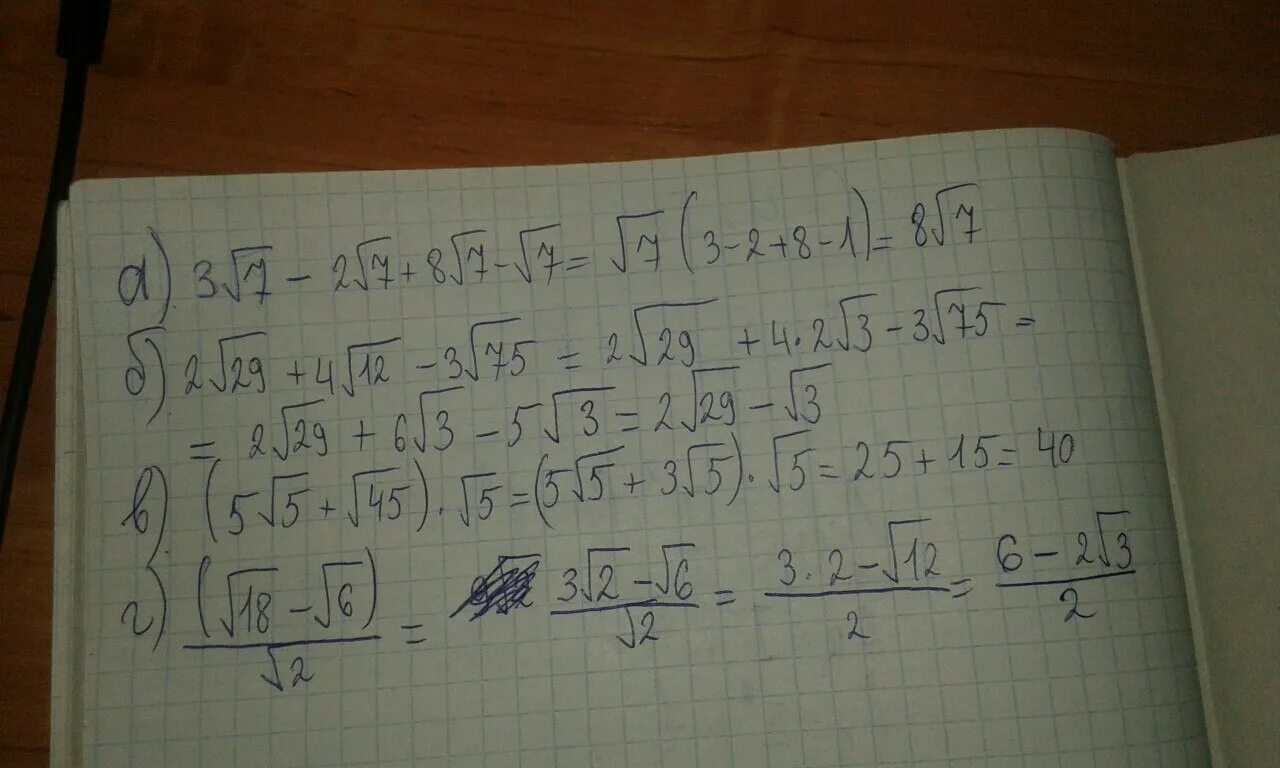 а) 3√7 - 2√7 + 8√7 - √7 = √7 (3-2+8-1) = 8√7
б) 2√29 + 4√12 - 3√75 = 2√29 + 4·2√3 - 3√75 =
= 2√29 + 6√3 - 5√3 = 2√29 - √3
в) (5√5 + √45)·√5 = (5√5 + 3√5)·√5 = 25 + 15 = 40
г) (√18 - √6)/√2 = (3√2 - √6)/√2 = (3·2 - √12)/2 = (6 - 2√3)/2